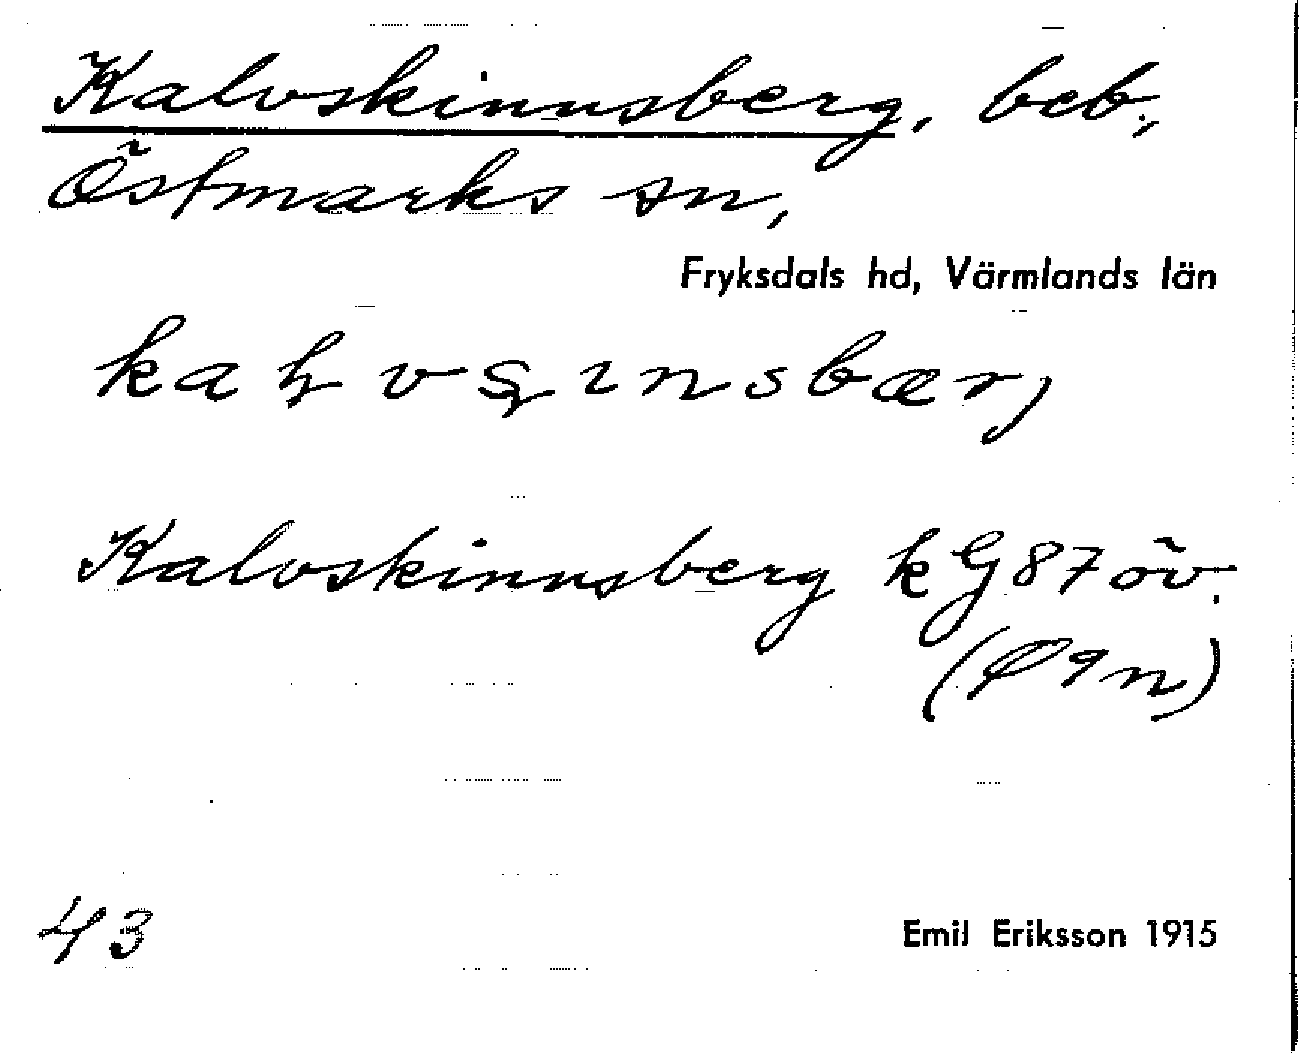 Kalvskinnsberg, beb.,
Östmarks sn,
Fryksdals hd, Värmlands län
Kalvskinnsberg kG87öv.
43
Emil Eriksson 1915